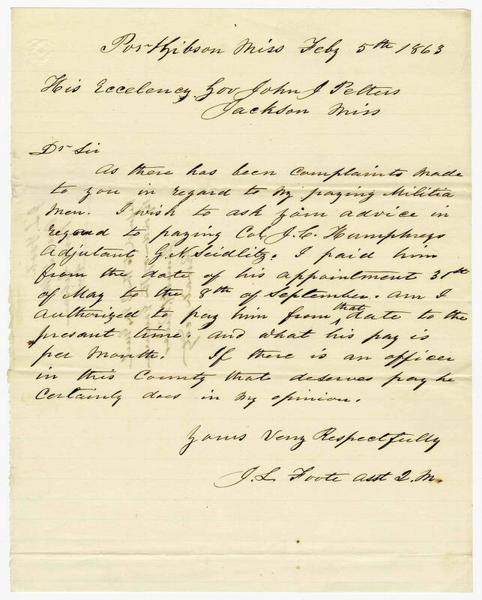 Port Gibson Miss Feby 5th 1863
His Eccelency Gov John J Pettus
Jackson Miss
Dr Sir
As there has been complaints made
to you in regard to my paying Militia
men. I wish to ask your advice in
regard to paying Col J. C. Humphreys
Adjutant G. N. Seidlitz. I paid him
from the date of his appointment 30th
of May to the 8th of September. am I
authorized to pay him from that date to the
presant time. and what his pay is
per month. If there is an officer
in this County that deserves pay he
certainly does in my opinion.
Yours Very Respectfully
J. S. Foote asst Q. M.